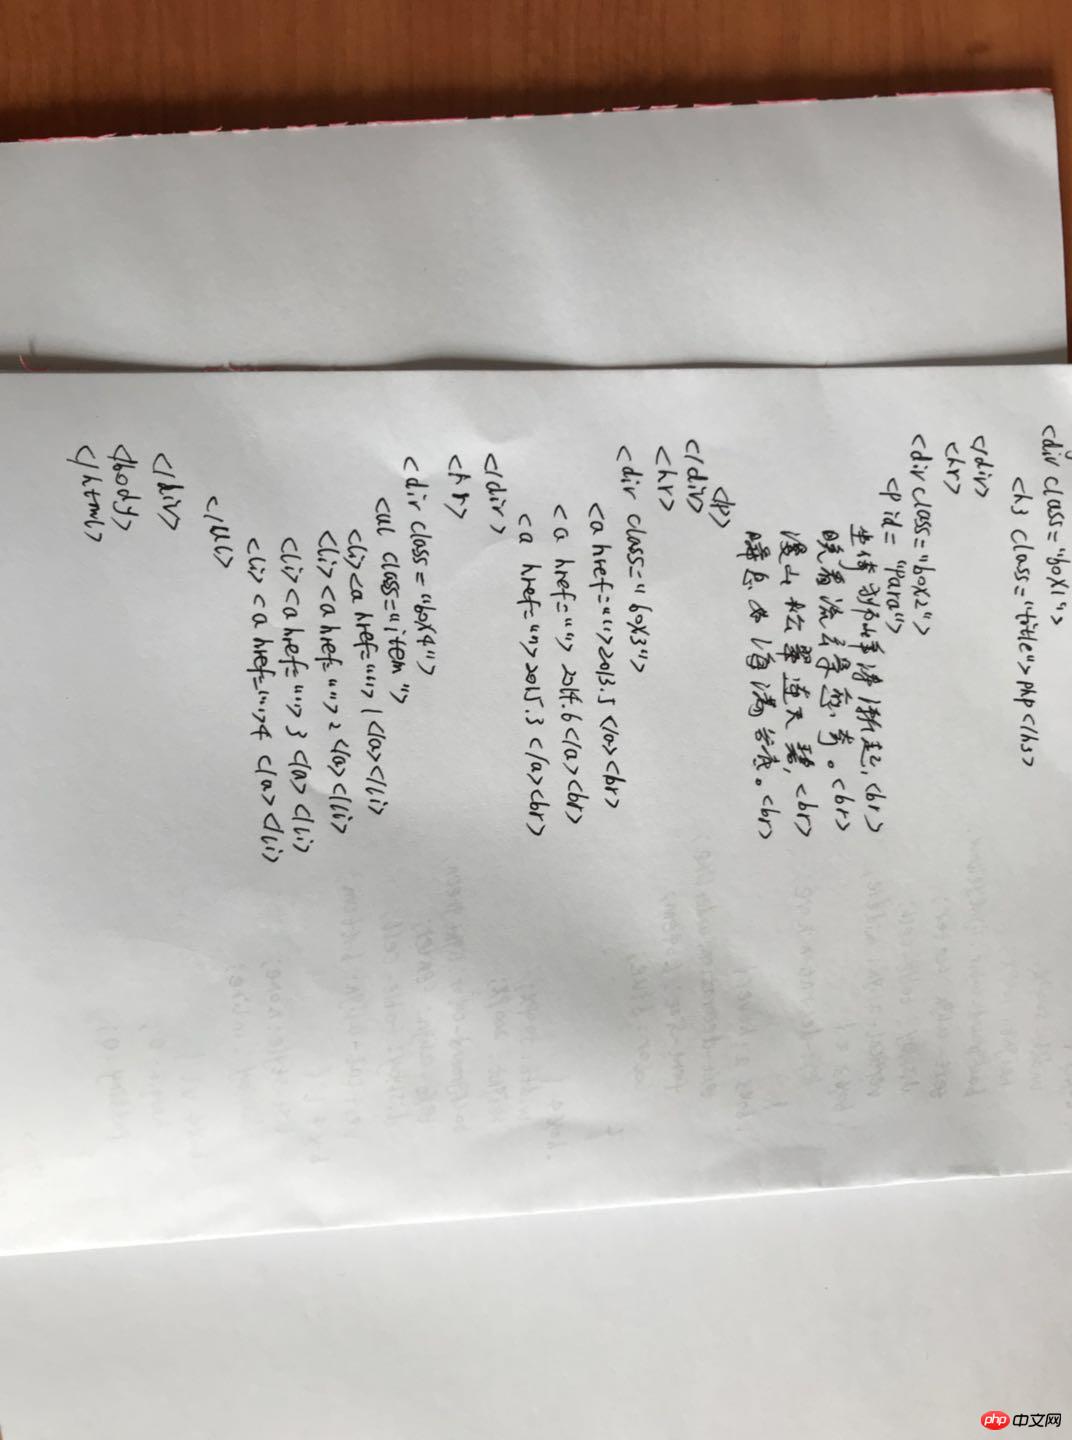 <div class="box1">
<h3 class="title">php</h3>
</div>
<hr>
<div class="box2">
<p id="para">
坐倚 渐起,<br>
晚看流云景愈奇。<br>
漫山松翠连天碧,<br>
海满谷底。<br>
<p>
</div>
<hr>
<div class="box3">
<a href="">2013.5</a><br>
<a href="">2014.6</a><br>
<a href="">2015.3</a><br>
</div>
<hr>
<div class="box4">
<ul class="item">
<li><a href="">1</a></li>
<li><a href="">2</a></li>
<li><a href="">3</a></li>
<li><a href="">4</a></li>
</ul>
</div>
</body>
</html>
php中文网